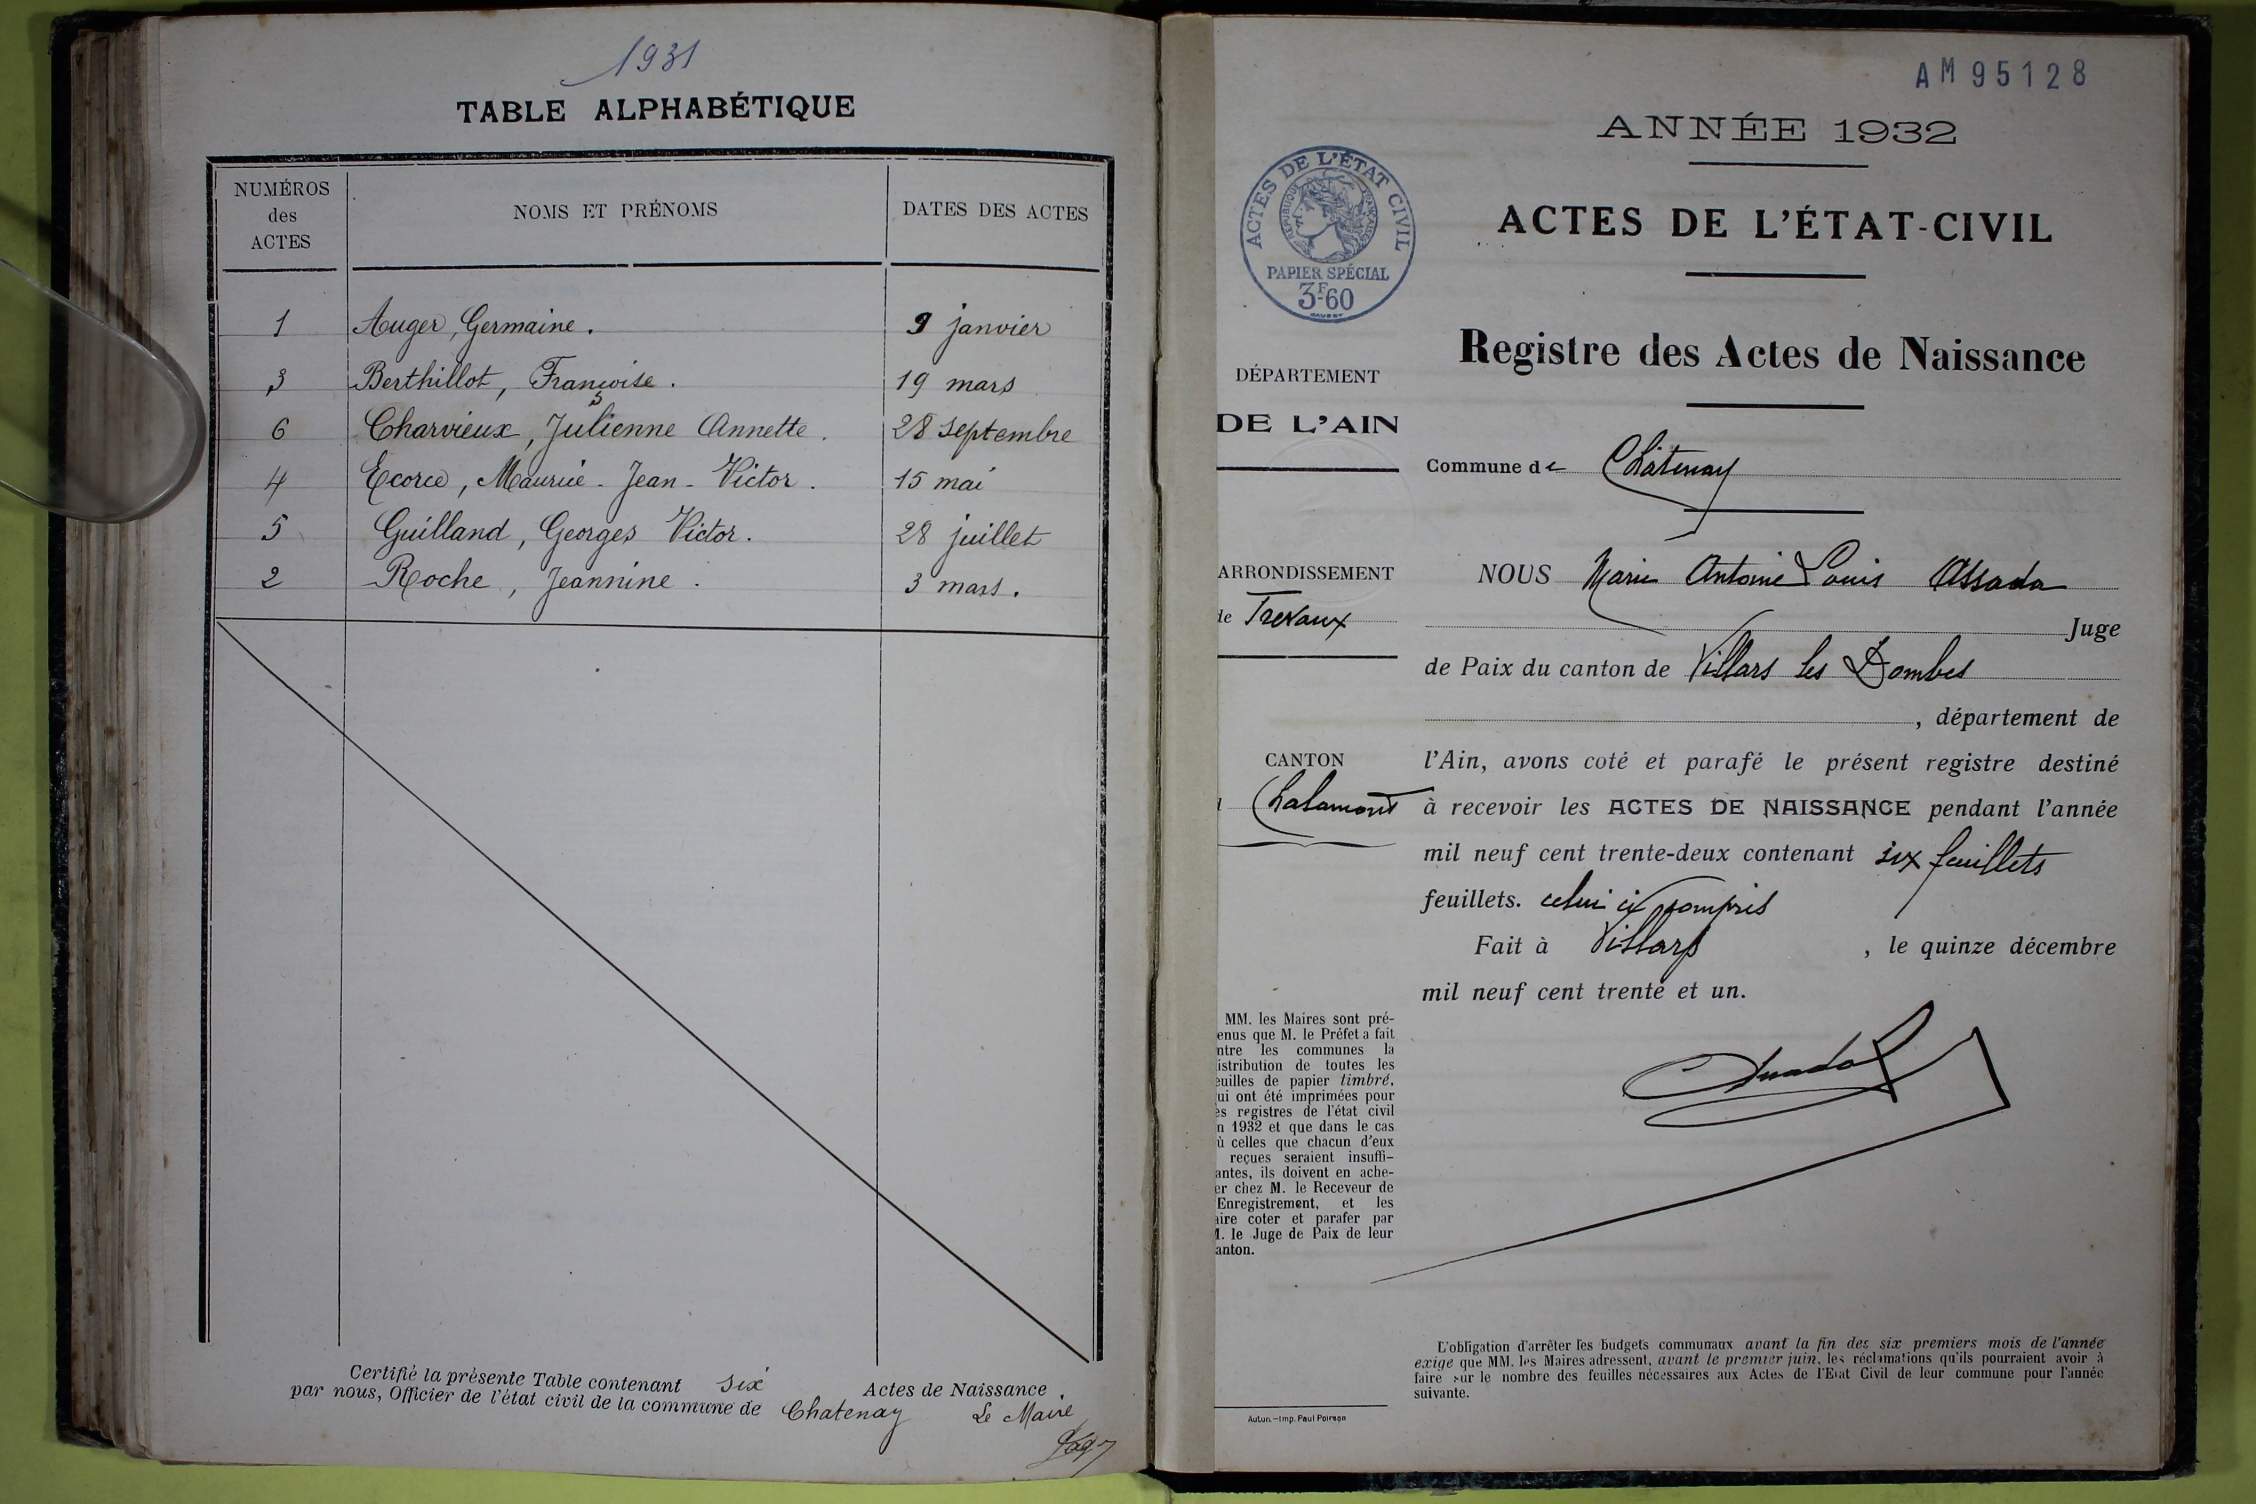 1931
TABLE ALPHABÉTIQUE
NUMÉROS des ACTES
NOMS ET PRÉNOMS
DATES DES ACTES
1 Auger, Germaine. 9 janvier
3 Berthillot, Françoise. 19 mars
6 Charvieux, Julienne Annette. 28 septembre
4 Ecorce, Maurice-Jean-Victor. 15 mai
5 Guilland, Georges Victor. 28 juillet
2 Roche, Jeannine. 3 mars.
Certifié la présente Table contenant six Actes de Naissance
par nous, Officier de l'état civil de la commune de Chatenay Le Maire
AM95128
ANNÉE 1932
ACTES DE L'ÉTAT CIVIL
RÉPUBLIQUE FRANÇAISE
PAPIER SPÉCIAL
3F60
ACTES DE L'ÉTAT-CIVIL
Registre des Actes de Naissance
DÉPARTEMENT
DE L'AIN
Commune de Châtenay
ARRONDISSEMENT
de Trévoux
CANTON
Chalamont
NOUS Marie Antoine Louis Assada
Juge
de Paix du canton de Villars les Dombes
, département de
l'Ain, avons coté et parafé le présent registre destiné
à recevoir les ACTES DE NAISSANCE pendant l'année
mil neuf cent trente-deux contenant six feuillets
feuillets. celui ci compris
Fait à Villars, le quinze décembre
mil neuf cent trente et un.
MM. les Maires sont pré-
enus que M. le Préfet a fait
ntre les communes la
istribution de toutes les
euilles de papier timbré,
ui ont été imprimées pour
es registres de l'état civil
n 1932 et que dans le cas
ù celles que chacun d'eux
reçues seraient insuffi-
antes, ils doivent en ache-
er chez M. le Receveur de
Enregistrement, et les
aire coter et parafer par
M. le Juge de Paix de leur
anton.
L'obligation d'arrêter les budgets communaux avant la fin des six premiers mois de l'année
exige que MM. les Maires adressent, avant le premier juin, les réclamations qu'ils pourraient avoir à
faire sur le nombre des feuilles nécessaires aux Actes de l'Etat Civil de leur commune pour l'année
suivante.
Autun.-Imp. Paul Poirson